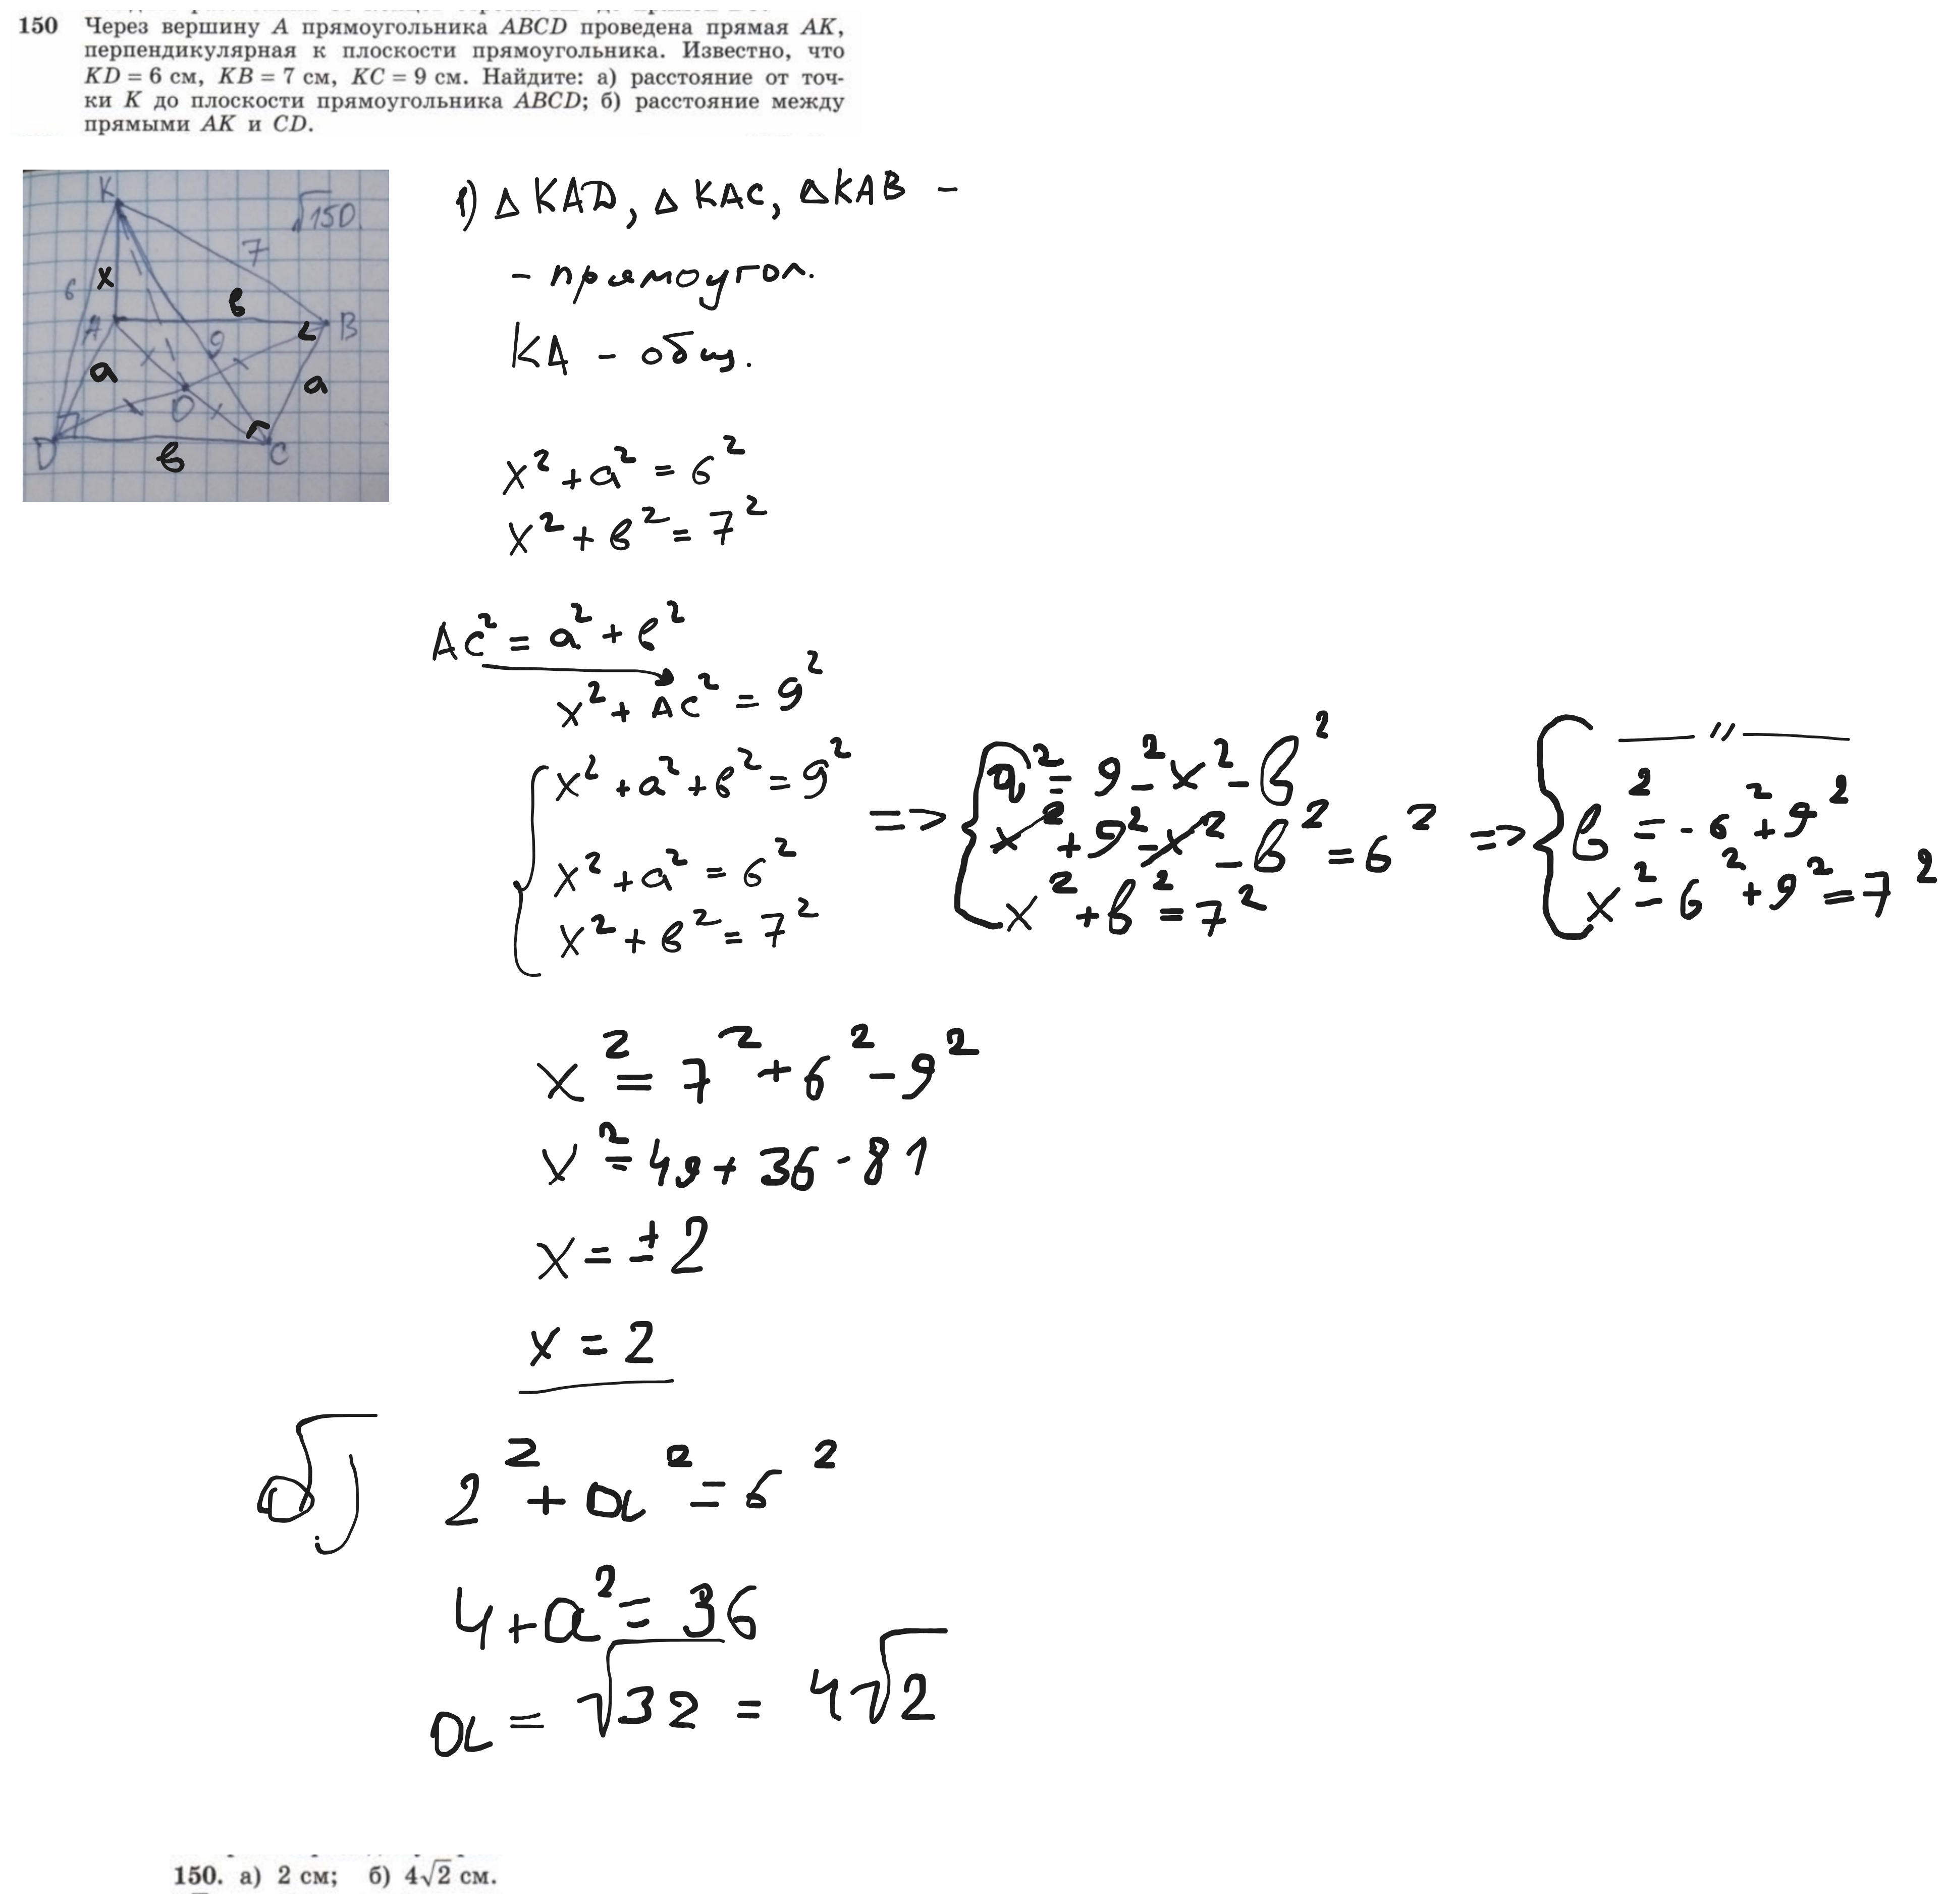 150 Через вершину A прямоугольника ABCD проведена прямая AK,
перпендикулярная к плоскости прямоугольника. Известно, что
KD = 6 см, KB = 7 см, KC = 9 см. Найдите: а) расстояние от точ-
ки K до плоскости прямоугольника ABCD; б) расстояние между
прямыми AK и CD.
K
√150.
7
6
x
в
A
B
9
a
a
O
D
в
C
1) Δ KAD, Δ KAC, Δ KAB –
– прямоугол.
KA – общ.
x² + a² = 6²
x² + в² = 7²
AC² = a² + в²
x² + AC² = 9²
x² + a² + в² = 9²
x² + a² = 6²
x² + в² = 7²
=>
a² = 9² – x² – в²
x² + 9² – x² – в² = 6²
x² + в² = 7²
=>
— // —
в² = – 6² + 9²
x² – 6² + 9² = 7²
x² = 7² + 6² – 9²
x² = 49 + 36 - 81
x = ± 2
x = 2
б) 2² + a² = 6²
4 + a² = 36
a = √32 = 4√2
150. а) 2 см; б) 4√2 см.